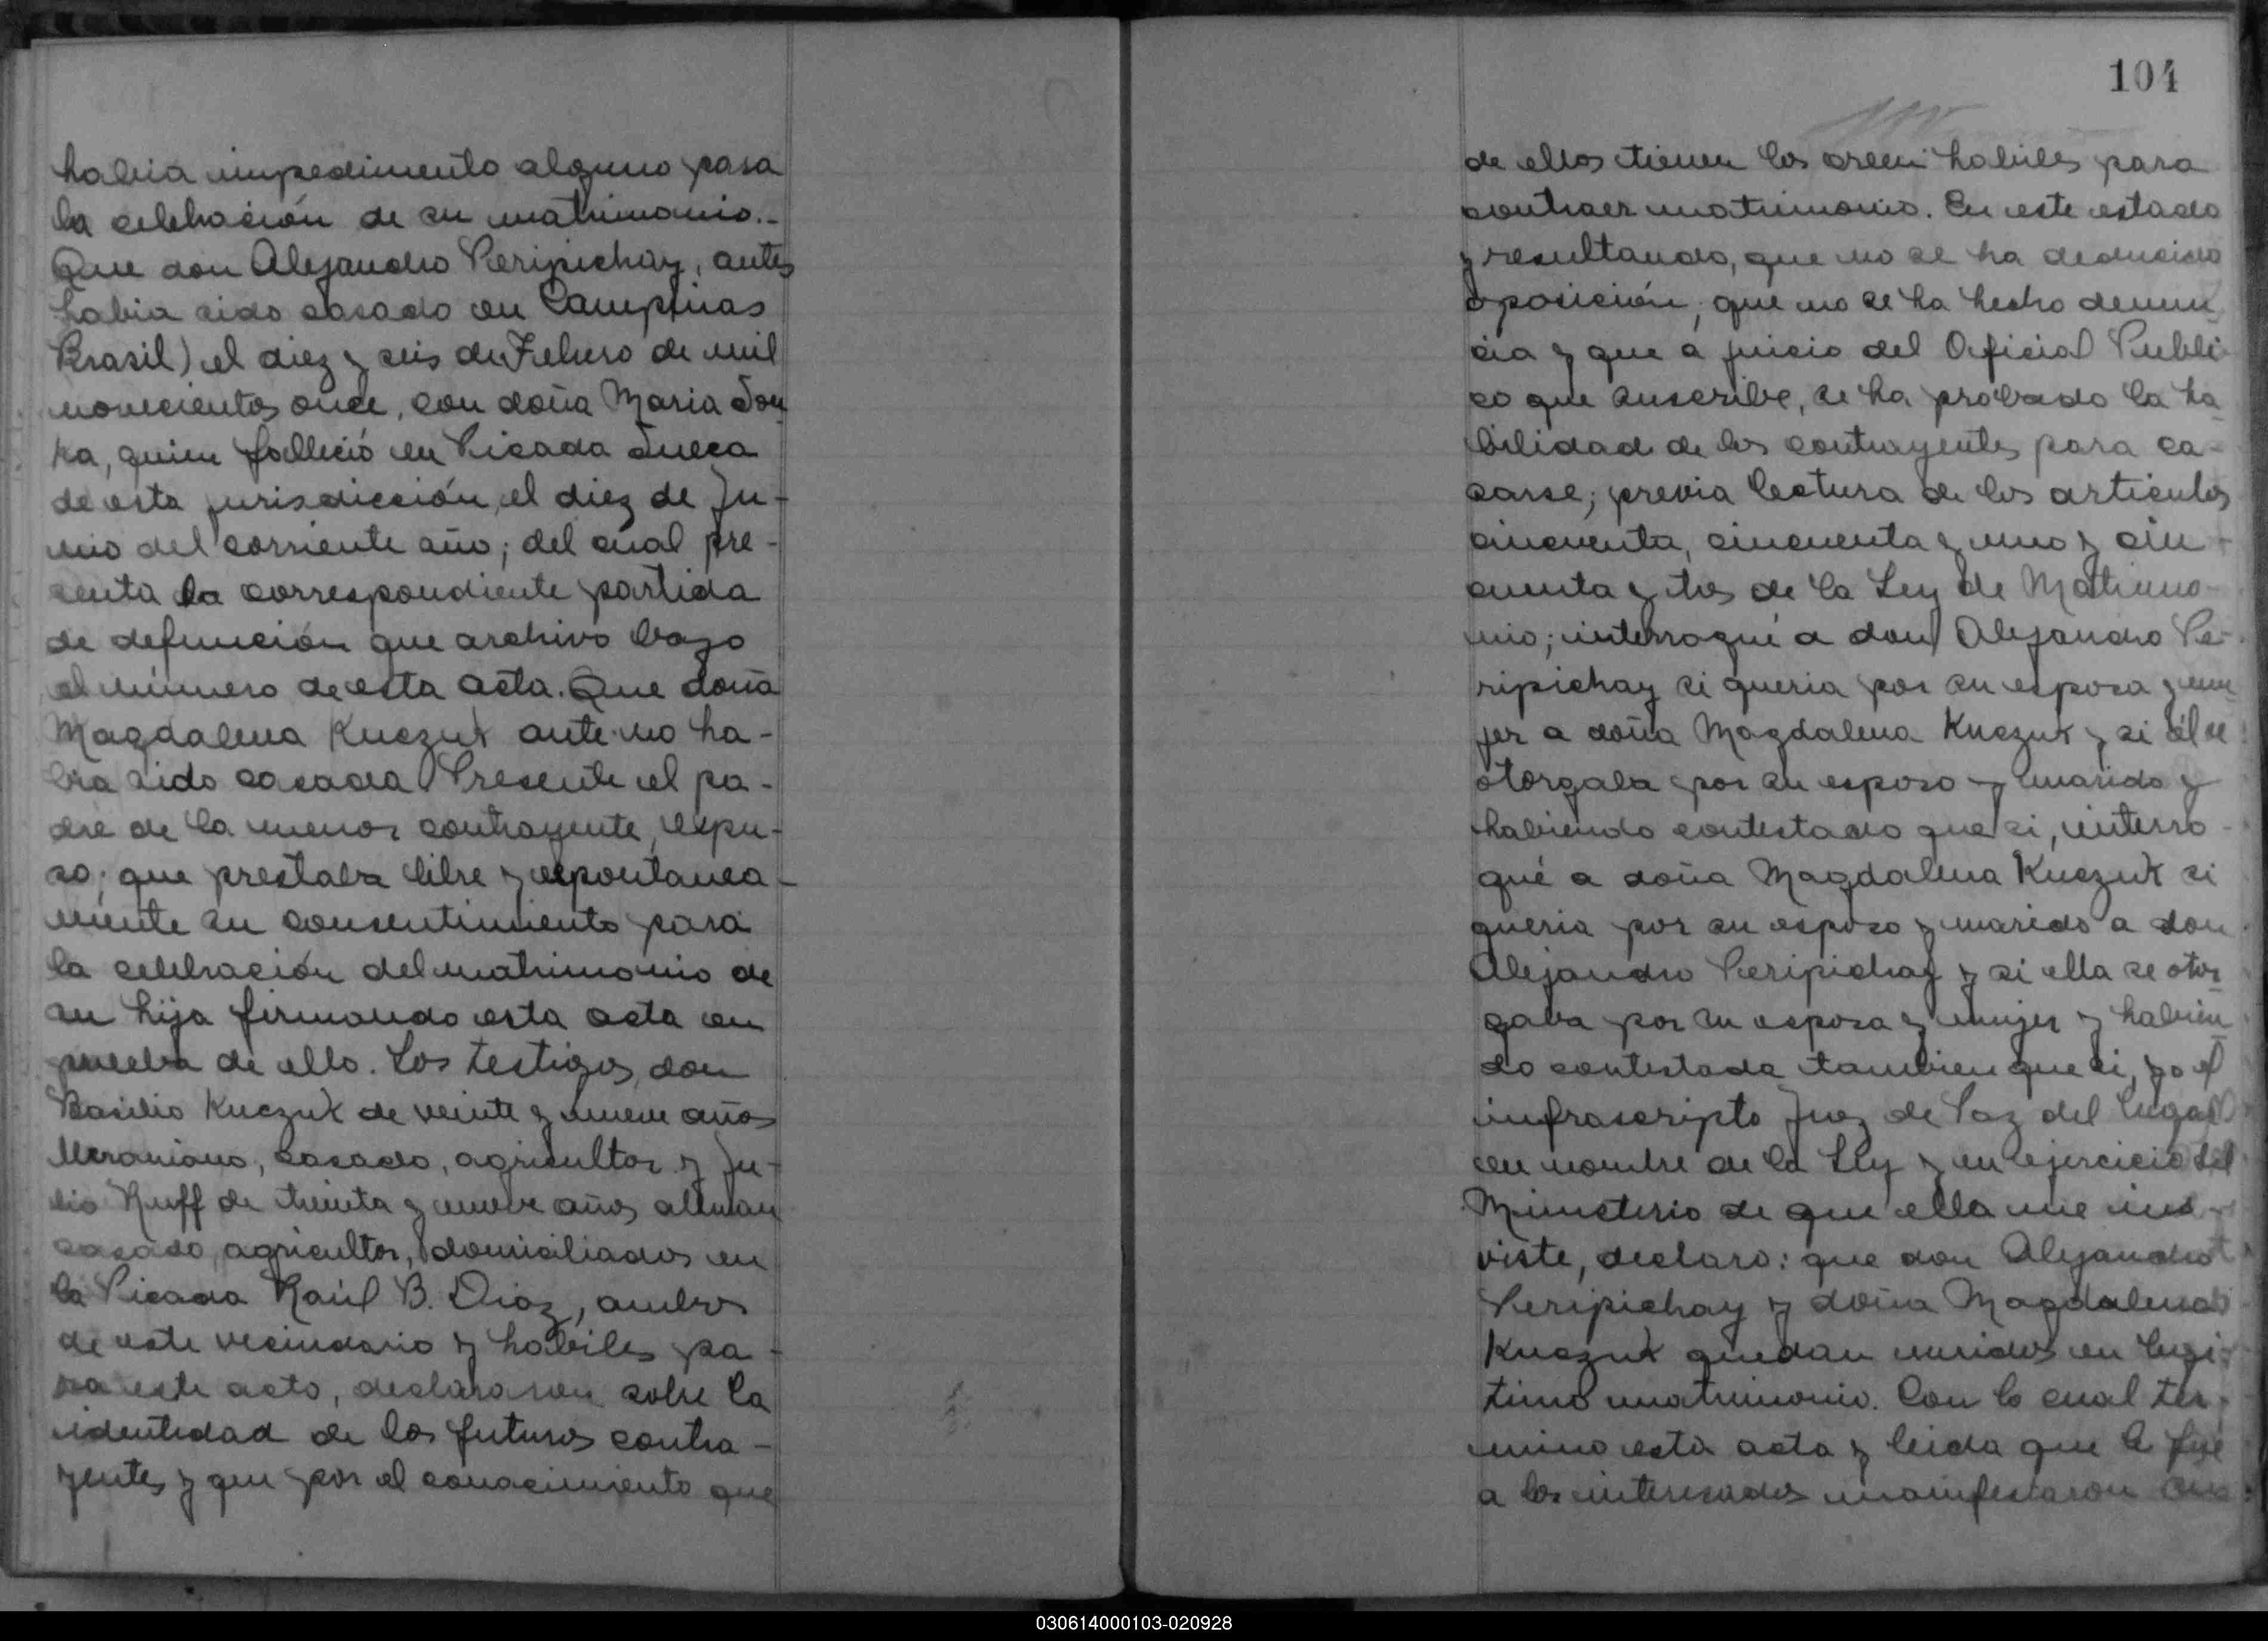 habia impedimento alguno para
la celebración de su matrimonio.-
Que don Alejandro Peripichay, antes
habia sido casado en Campinas
Brasil) el diez y seis de Febrero de mil
novecientos once, con doña Maria Son
ka, quien falleció en Picada Sueca
de esta jurisdicción, el diez de Ju-
nio del corriente año; del cual pre-
senta la correspondiente partida
de defunción que archivo bajo
el número de esta acta. Que doña
Magdalena Kuczuk ante no ha-
bia sido casada Presente el pa-
dre de la menor contrayente, expu-
so; que prestaba libre y espontanea-
mente su consentimiento para
la celebración del matrimonio de
su hija firmando esta acta en
prueba de ello. Los testigos, don
Basilio Kuczuk de veinte y nueve años
Ucraniano, casado, agricultor y Ju-
lio Ruff de treinta y nueve años aleman
casado, agricultor, domiciliados en
la Picada Raúl B. Diaz, ambos
de este vecindario y habiles pa-
ra este acto, declararon sobre la
identidad de los futuros contra-
yentes y que por el conocimiento que
104
de ellos tienen los creen habiles para
contraer matrimonio. En este estado
y resultando, que no se ha deducido
oposición, que no se ha hecho denun
cia y que a juicio del Oficial Publi
co que suscribe, se ha probado la ha
bilidad de los contrayentes para ca-
sarse; previa lectura de los articulos
cincuenta, cincuenta y uno y cin-
cuenta y tres de la Ley de Matrimo-
nio; interrogué a don Alejandro Pe-
ripichay si queria por su esposa y mu
jer a doña Magdalena Kuczuk y si él se
otorgaba por su esposo y marido y
habiendo contestado que si, interro-
gué a doña Magdalena Kuczuk si
queria por su esposo y marido a don
Alejandro Peripichay y si ella se otor
gaba por su esposa y mujer y habien
do contestada tambien que si, yo el
infrascripto Juez de Paz del lugar
en nombre de la Ley y en ejercicio del
Ministerio de que ella me ins-
viste, declaro: que don Alejandro
Peripichay y doña Magdalena
Kuczuk quedan unidos en legi-
timo matrimonio. Con lo cual ter-
mino esta acta y leida que le fue
a los interesados manifestaron
030614000103-020928